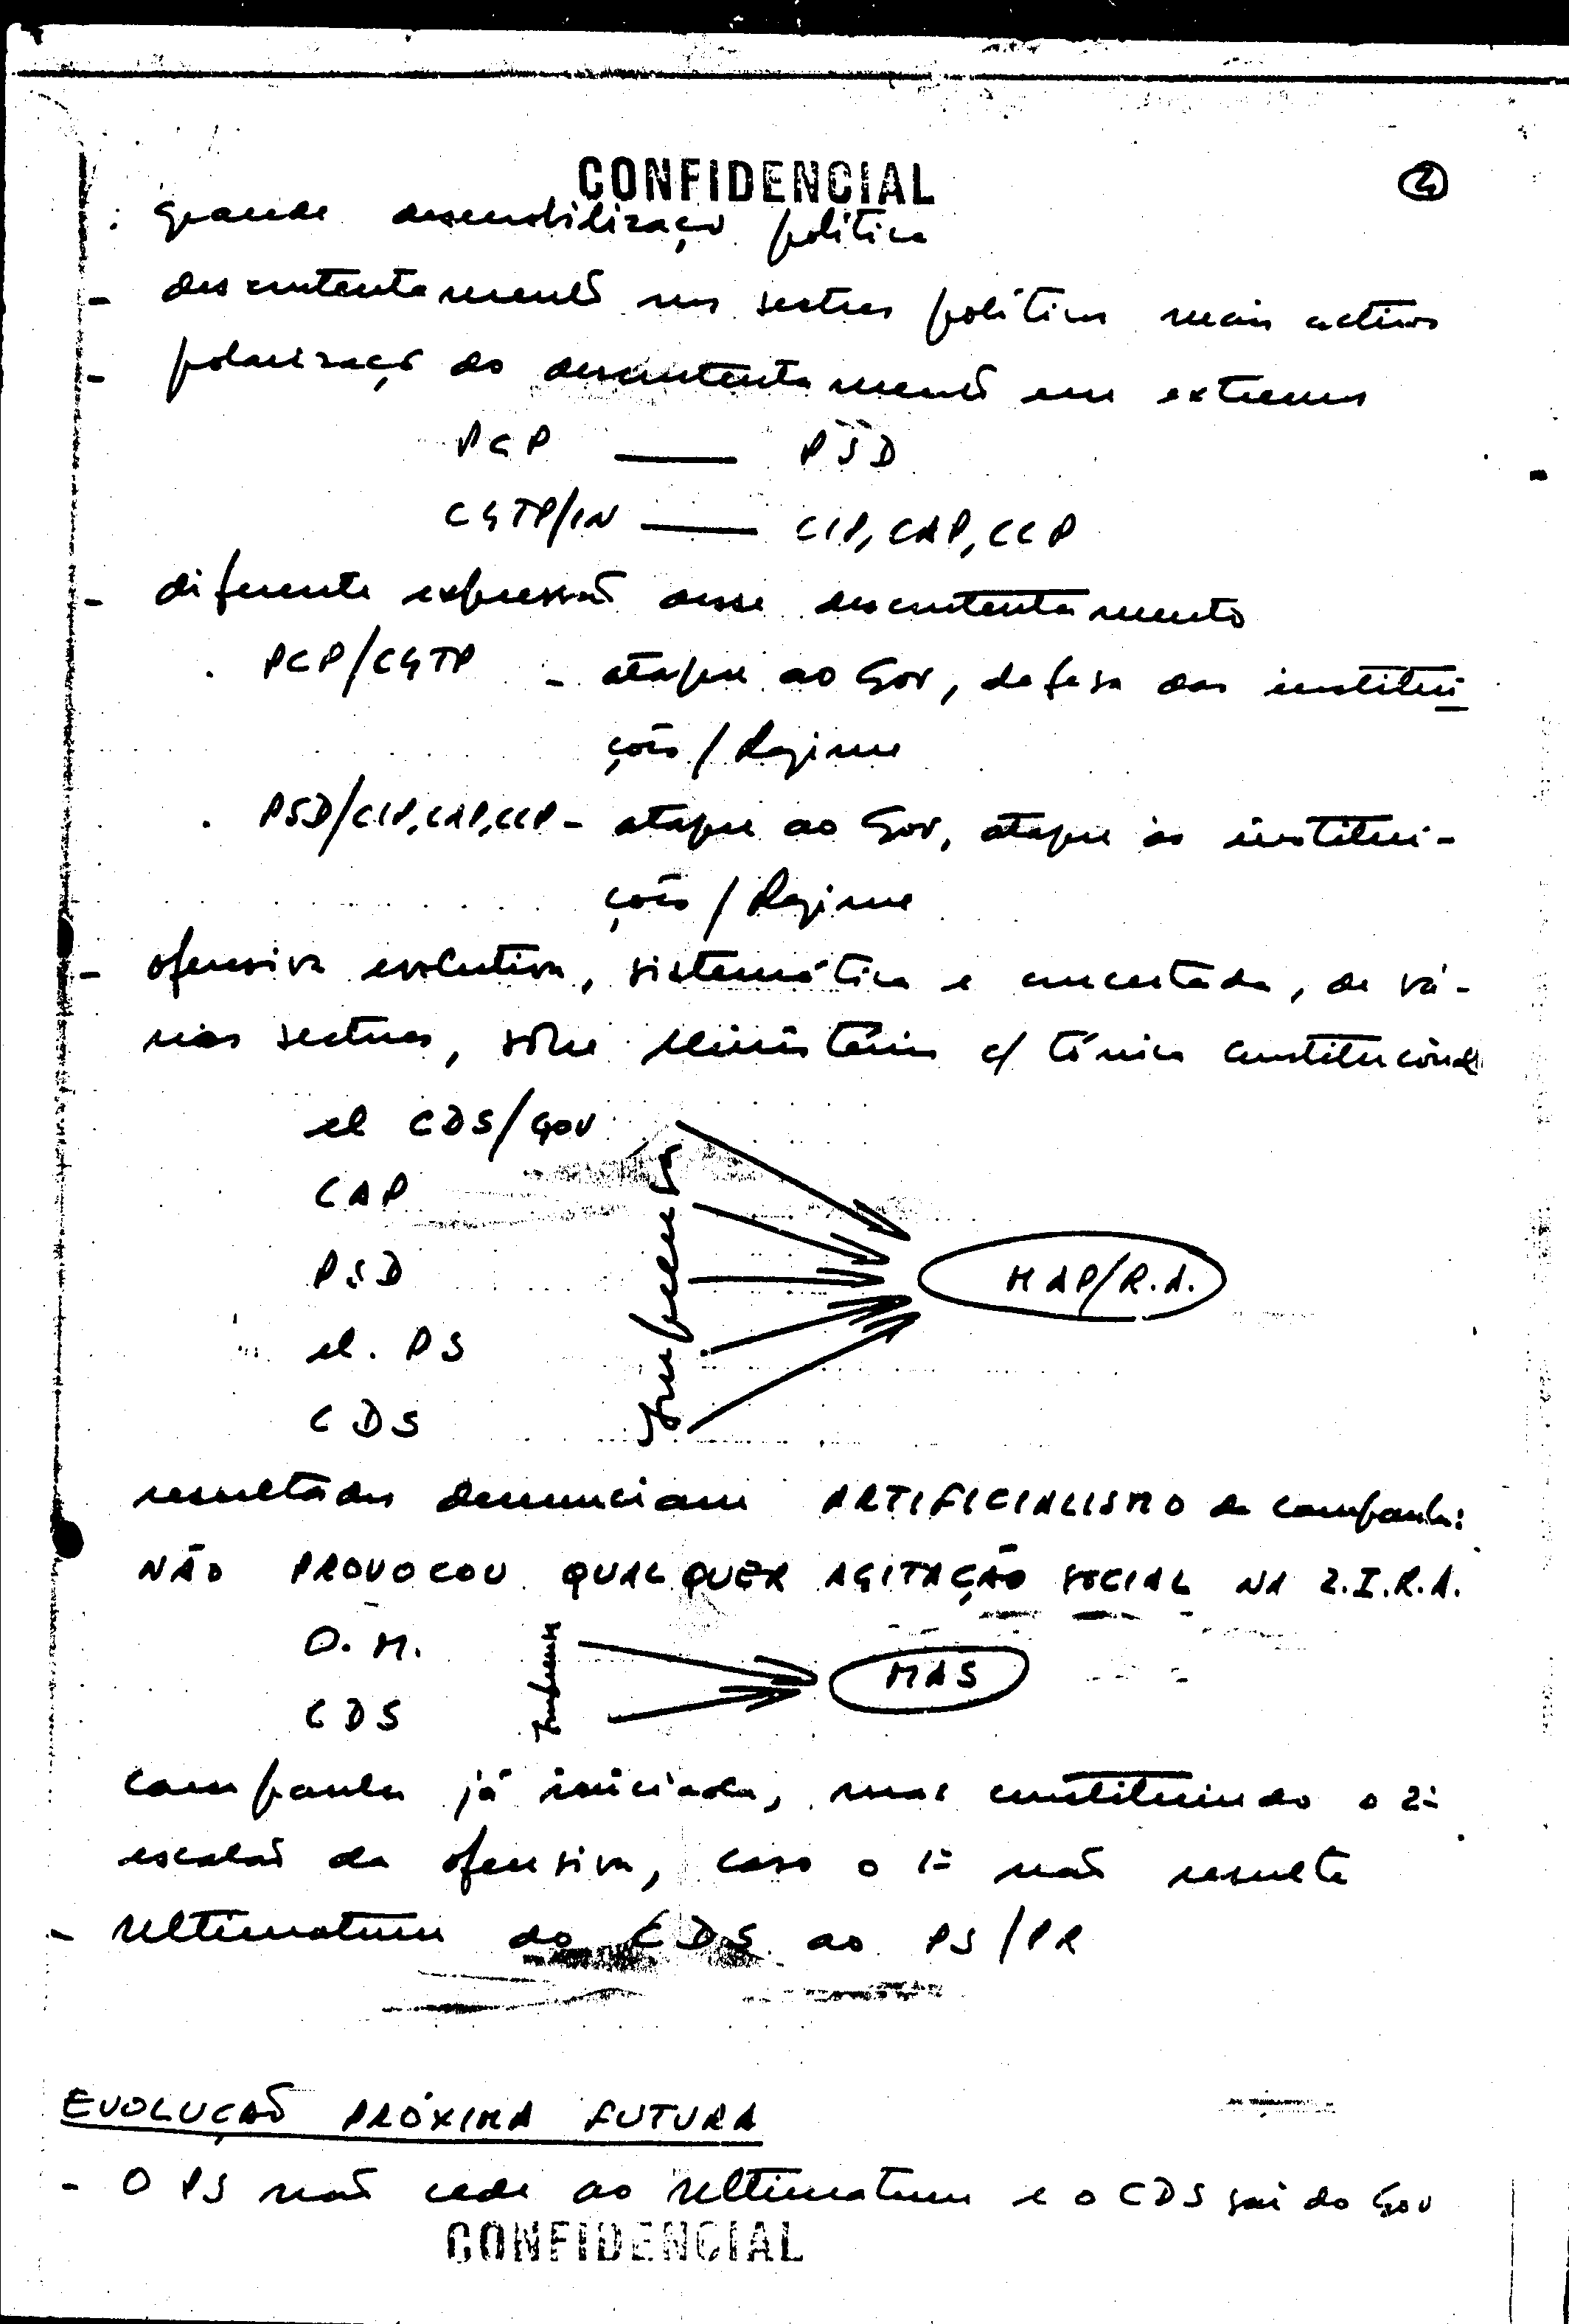 CONFIDENCIAL
2
- grande desmobilização política
- descontentamento nos sectores políticos mais activos
- polarização do descontentamento em extremos
PCP — PSD
CGTP/IN — CIP, CAP, CCP
- diferente expressão desse descontentamento
. PCP/CGTP - ataque ao Gov, defesa das institui
ções / Regime
. PSD/CIP, CAP, CCP - ataque ao Gov, ataque às institui-
ções / Regime
- ofensiva evolutiva, sistemática e concertada, de vá-
rios sectores, sobre Ministérios c/ tónica constitucional
el CDS/Gov
CAP
PSD
el. PS
CDS
Imprensa
MAP/R.A.
resultados denunciam ARTIFICIALISMO da campanha:
NÃO PROVOCOU QUALQUER AGITAÇÃO SOCIAL NA Z.I.R.A.
O.M.
CDS
Imprensa
MAS
campanha já iniciada, mas constituindo o 2º
escalão da ofensiva, caso o 1º não resulte
- Ultimatum do CDS ao PS/PR
EVOLUÇÃO PRÓXIMA FUTURA
- O PS não cede ao Ultimatum e o CDS sai do Gov
CONFIDENCIAL